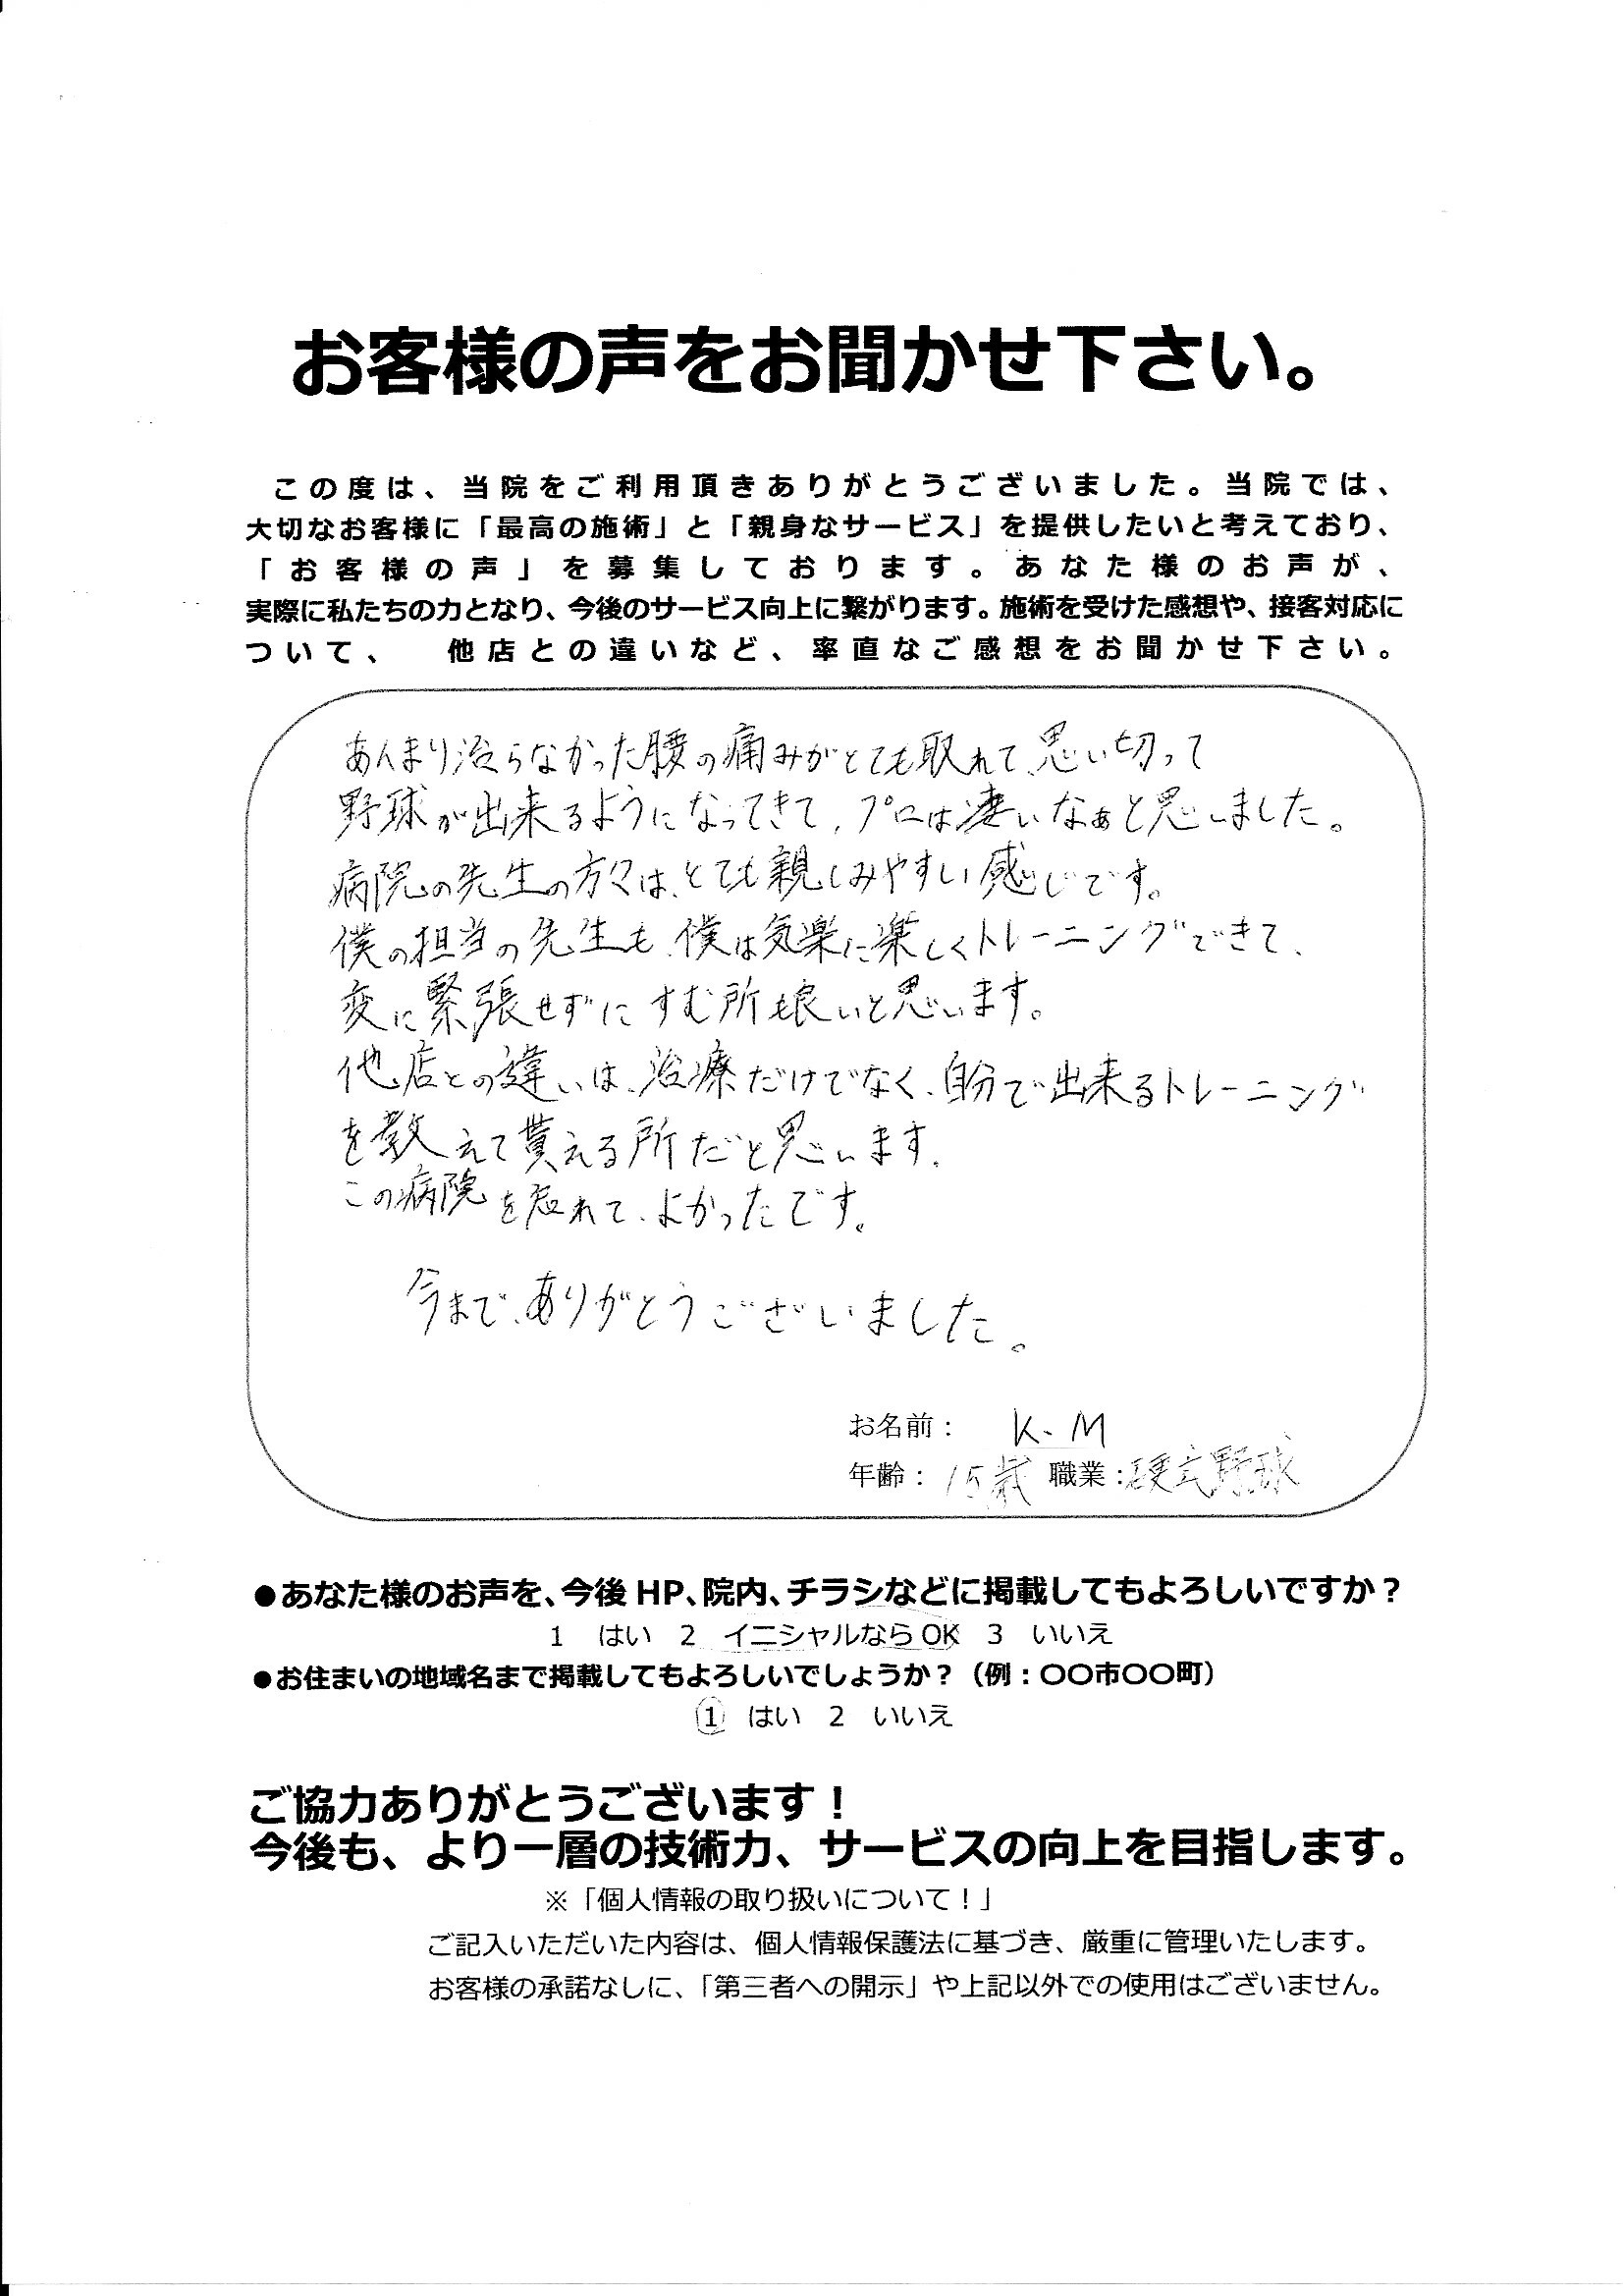 お客様の声をお聞かせ下さい。
この度は、当院をご利用頂きありがとうございました。当院では、
大切なお客様に「最高の施術」と「親身なサービス」を提供したいと考えており、
「お客様の声」を募集しております。あなた様のお声が、
実際に私たちの力となり、今後のサービス向上に繋がります。施術を受けた感想や、接客対応に
ついて、　他店との違いなど、率直なご感想をお聞かせ下さい。
あんまり治らなかった腰の痛みがとても取れて、思い切って
野球が出来るようになってきて、プロは凄いなぁと思いました。
病院の先生の方々は、とても親しみやすい感じです。
僕の担当の先生も、僕は気楽に楽しくトレーニングできて、
変に緊張せずにすむ所も良いと思います。
他店との違いは、治療だけでなく、自分で出来るトレーニング
を教えて貰える所だと思います。
この病院を れて、よかったです。
今まで、ありがとうございました。
お名前： K.M
年齢： 15歳 職業：硬式野球
●あなた様のお声を、今後 HP、院内、チラシなどに掲載してもよろしいですか？
1　はい　2　イニシャルなら OK　3　いいえ
●お住まいの地域名まで掲載してもよろしいでしょうか？（例：〇〇市〇〇町）
1　はい　2　いいえ
ご協力ありがとうございます！
今後も、より一層の技術力、サービスの向上を目指します。
※「個人情報の取り扱いについて！」
ご記入いただいた内容は、個人情報保護法に基づき、厳重に管理いたします。
お客様の承諾なしに、「第三者への開示」や上記以外での使用はございません。